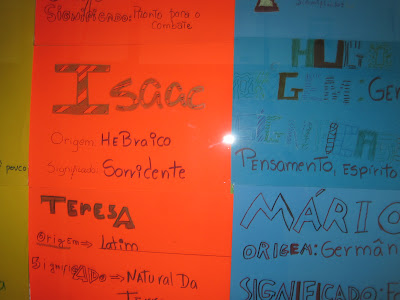 Significado: Pronto para o
combate
Isaac
Origem: HeBraico
Significado: Sorridente
Teresa
Origem ⇒ Latim
Significado ⇒ Natural Da
pouco
HUGO
Pensamento, Espírito
MÁRIO
ORIGEM: Germân
SIGNIFICADO: